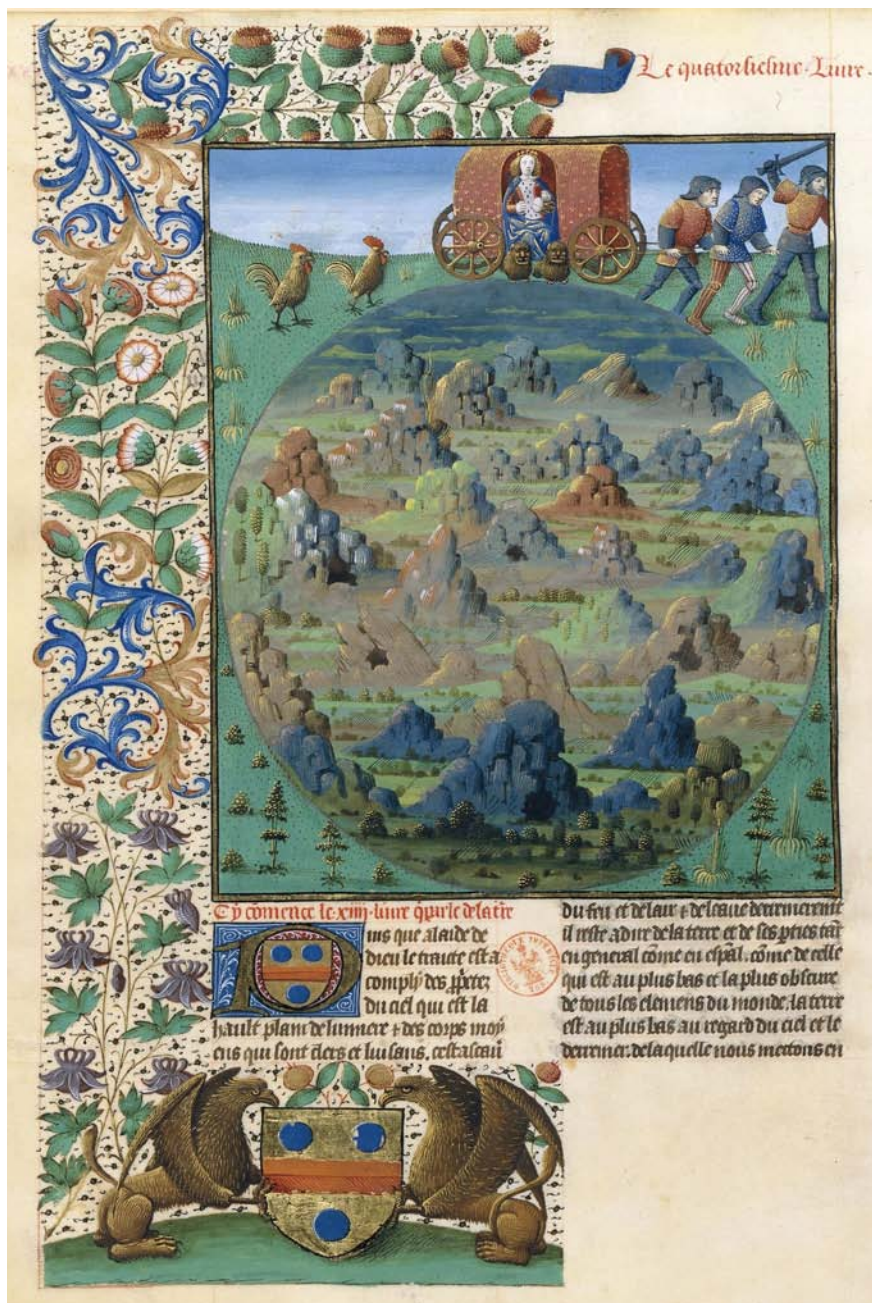 Le quatorsiesme Liure
Cy cõmence le xiiii liure q̃ p̱le de la tr̃e
Puis que a laide de
dieu le traitie est a
comply des p̃ptez
du ciel qui est la
hault plain de lumiere ⁊ des corps moỹ
ens qui sont clers et luisans, cest ascau͂
du feu et de lair ⁊ de leaue derrenierem̃t
il reste a dire de la terre et de ses p̱ties tãt
en general cõme en esp̃al. cõme de celle
qui est au plus bas et la plus obscure
de tous les elemens du monde, la terre
est au plus bas au regard du ciel et le
derrenier. de laquelle nous mettons en